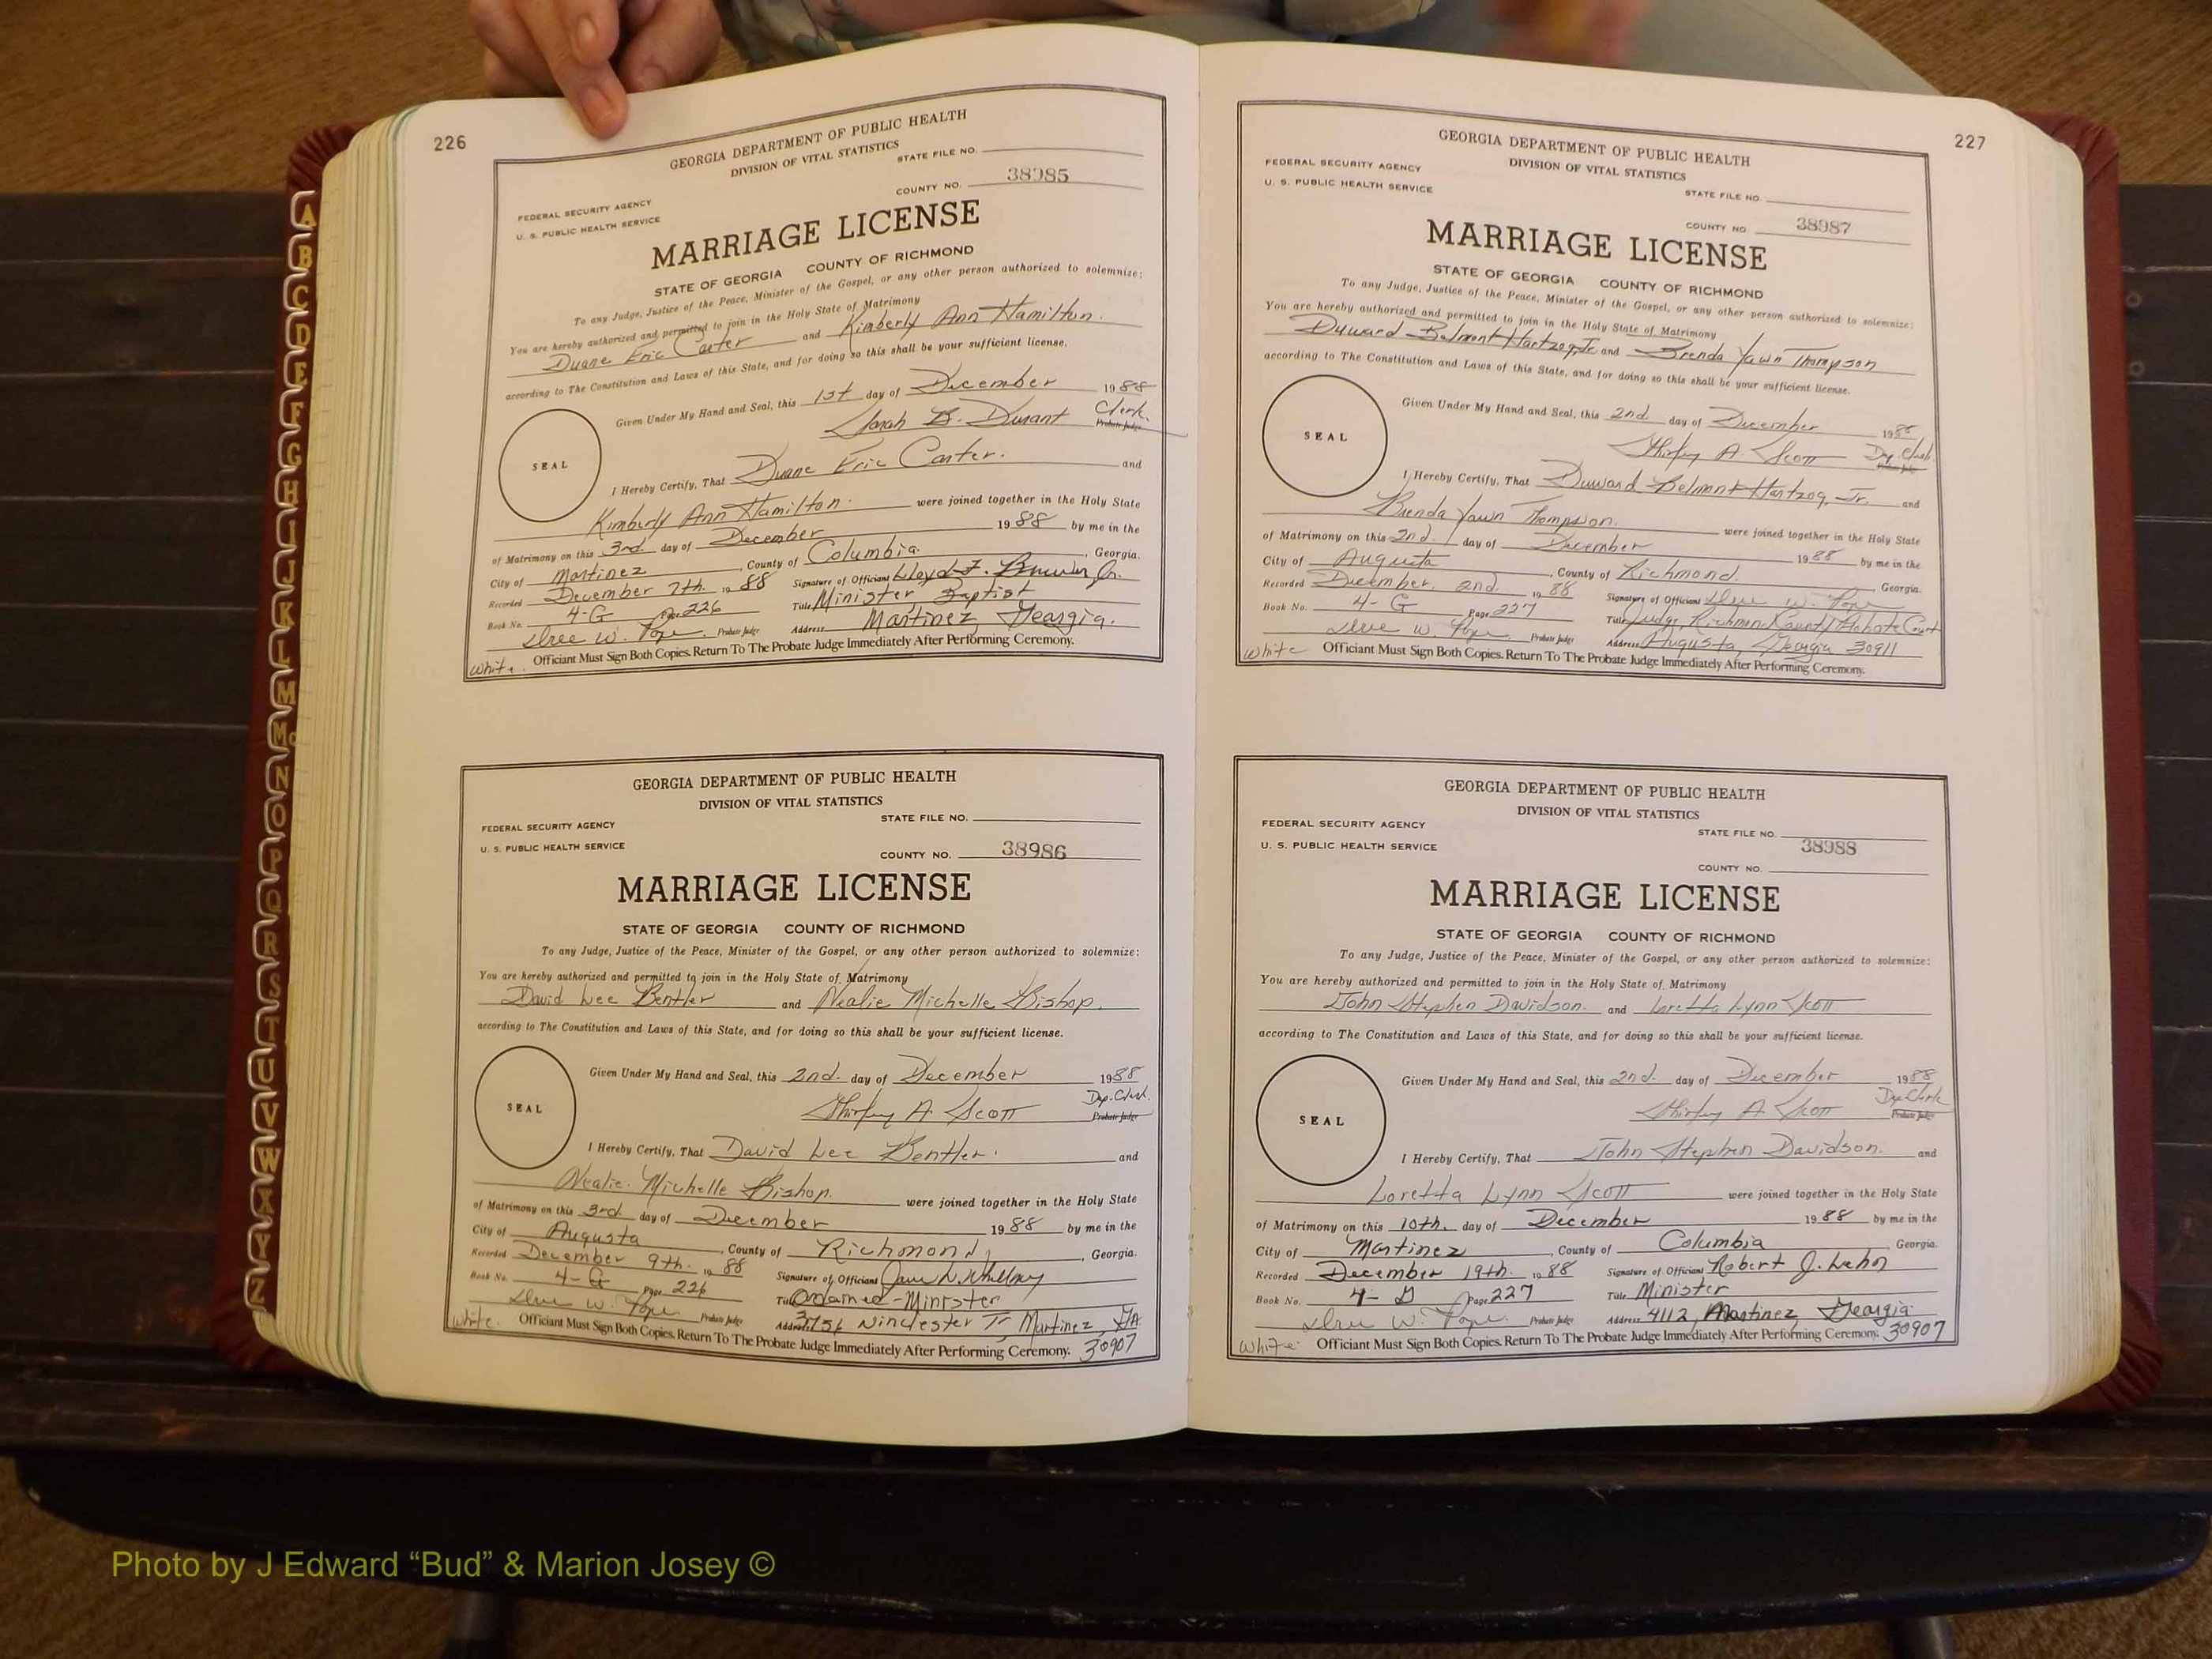 226
GEORGIA DEPARTMENT OF PUBLIC HEALTH
DIVISION OF VITAL STATISTICS
STATE FILE NO.
COUNTY NO. 38985
FEDERAL SECURITY AGENCY
U. S. PUBLIC HEALTH SERVICE
MARRIAGE LICENSE
STATE OF GEORGIA COUNTY OF RICHMOND
To any Judge, Justice of the Peace, Minister of the Gospel, or any other person authorized to solemnize:
You are hereby authorized and permitted to join in the Holy State of Matrimony
Duane Eric Carter and Kimberly Ann Hamilton.
according to The Constitution and Laws of this State, and for doing so this shall be your sufficient license.
Given Under My Hand and Seal, this 1st day of December 1988
Sarah B. Durant Clerk.
Probate Judge
SEAL
I Hereby Certify, That Duane Eric Carter. and
Kimberly Ann Hamilton. were joined together in the Holy State
of Matrimony on this 3rd. day of December 1988 by me in the
City of Martinez, County of Columbia, Georgia.
Recorded December 7th. 1988 Signature of Officiant Lloyd F. Jr.
Book No. 4-G Page 226 Title Minister Baptist
W. Pope. Probate Judge Address Martinez, Georgia.
White. Officiant Must Sign Both Copies. Return To The Probate Judge Immediately After Performing Ceremony.
GEORGIA DEPARTMENT OF PUBLIC HEALTH
DIVISION OF VITAL STATISTICS
STATE FILE NO.
FEDERAL SECURITY AGENCY
U. S. PUBLIC HEALTH SERVICE
COUNTY NO. 38986
MARRIAGE LICENSE
STATE OF GEORGIA COUNTY OF RICHMOND
To any Judge, Justice of the Peace, Minister of the Gospel, or any other person authorized to solemnize:
You are hereby authorized and permitted to join in the Holy State of Matrimony
David Lee Bentler and Nealie Michelle Bishop.
according to The Constitution and Laws of this State, and for doing so this shall be your sufficient license.
Given Under My Hand and Seal, this 2nd. day of December 1988
Shirley A. Scott Dep. Clerk.
Probate Judge
SEAL
I Hereby Certify, That David Lee Bentler. and
Nealie Michelle Bishop. were joined together in the Holy State
of Matrimony on this 3rd. day of December 1988 by me in the
City of Augusta, County of Richmond, Georgia.
Recorded December 9th. 1988 Signature of Officiant
Book No. 4-G Page 226 Title Ordained-Minister
W. Pope Probate Judge Address 3756 Winchester Tr Martinez, GA.
White. Officiant Must Sign Both Copies. Return To The Probate Judge Immediately After Performing Ceremony. 30907
227
GEORGIA DEPARTMENT OF PUBLIC HEALTH
DIVISION OF VITAL STATISTICS
FEDERAL SECURITY AGENCY
U. S. PUBLIC HEALTH SERVICE
STATE FILE NO.
COUNTY NO. 38987
MARRIAGE LICENSE
STATE OF GEORGIA COUNTY OF RICHMOND
To any Judge, Justice of the Peace, Minister of the Gospel, or any other person authorized to solemnize:
You are hereby authorized and permitted to join in the Holy State of Matrimony
Duward Belmont Hartzog, Jr. and Brenda Yawn Thompson
according to The Constitution and Laws of this State, and for doing so this shall be your sufficient license.
Given Under My Hand and Seal, this 2nd. day of December 1988
Shirley A. Scott Dep. Clerk.
Probate Judge
SEAL
I Hereby Certify, That Duward Belmont Hartzog, Jr. and
Brenda Yawn Thompson. were joined together in the Holy State
of Matrimony on this 2nd. day of December 1988 by me in the
City of Augusta, County of Richmond. Georgia.
Recorded December. 2nd. 1988 Signature of Officiant W. Pope
Book No. 4-G Page 227 Title Judge, Richmond County Probate Court
W. Pope Probate Judge Address Augusta, Georgia 30911
White Officiant Must Sign Both Copies. Return To The Probate Judge Immediately After Performing Ceremony.
GEORGIA DEPARTMENT OF PUBLIC HEALTH
DIVISION OF VITAL STATISTICS
FEDERAL SECURITY AGENCY
STATE FILE NO.
U. S. PUBLIC HEALTH SERVICE
38988
COUNTY NO.
MARRIAGE LICENSE
STATE OF GEORGIA COUNTY OF RICHMOND
To any Judge, Justice of the Peace, Minister of the Gospel, or any other person authorized to solemnize:
You are hereby authorized and permitted to join in the Holy State of Matrimony
John Stephen Davidson. and Loretta Lynn Scott
according to The Constitution and Laws of this State, and for doing so this shall be your sufficient license.
Given Under My Hand and Seal, this 2nd. day of December 1988
Shirley A. Scott Dep. Clerk
Probate Judge
SEAL
I Hereby Certify, That John Stephen Davidson. and
Loretta Lynn Scott were joined together in the Holy State
of Matrimony on this 10th. day of December 1988 by me in the
City of Martinez, County of Columbia, Georgia.
Recorded December 19th. 1988 Signature of Officiant Robert J. Lehn
Book No. 4-G Page 227 Title Minister
W. Pope. Probate Judge Address 4112, Martinez, Georgia
White Officiant Must Sign Both Copies. Return To The Probate Judge Immediately After Performing Ceremony. 30907
A
B
C
D
E
F
G
H
I
J
K
L
M
Mc
N
O
P
Q
R
S
T
U
V
W
X
Y
Z
Photo by J Edward “Bud” & Marion Josey ©